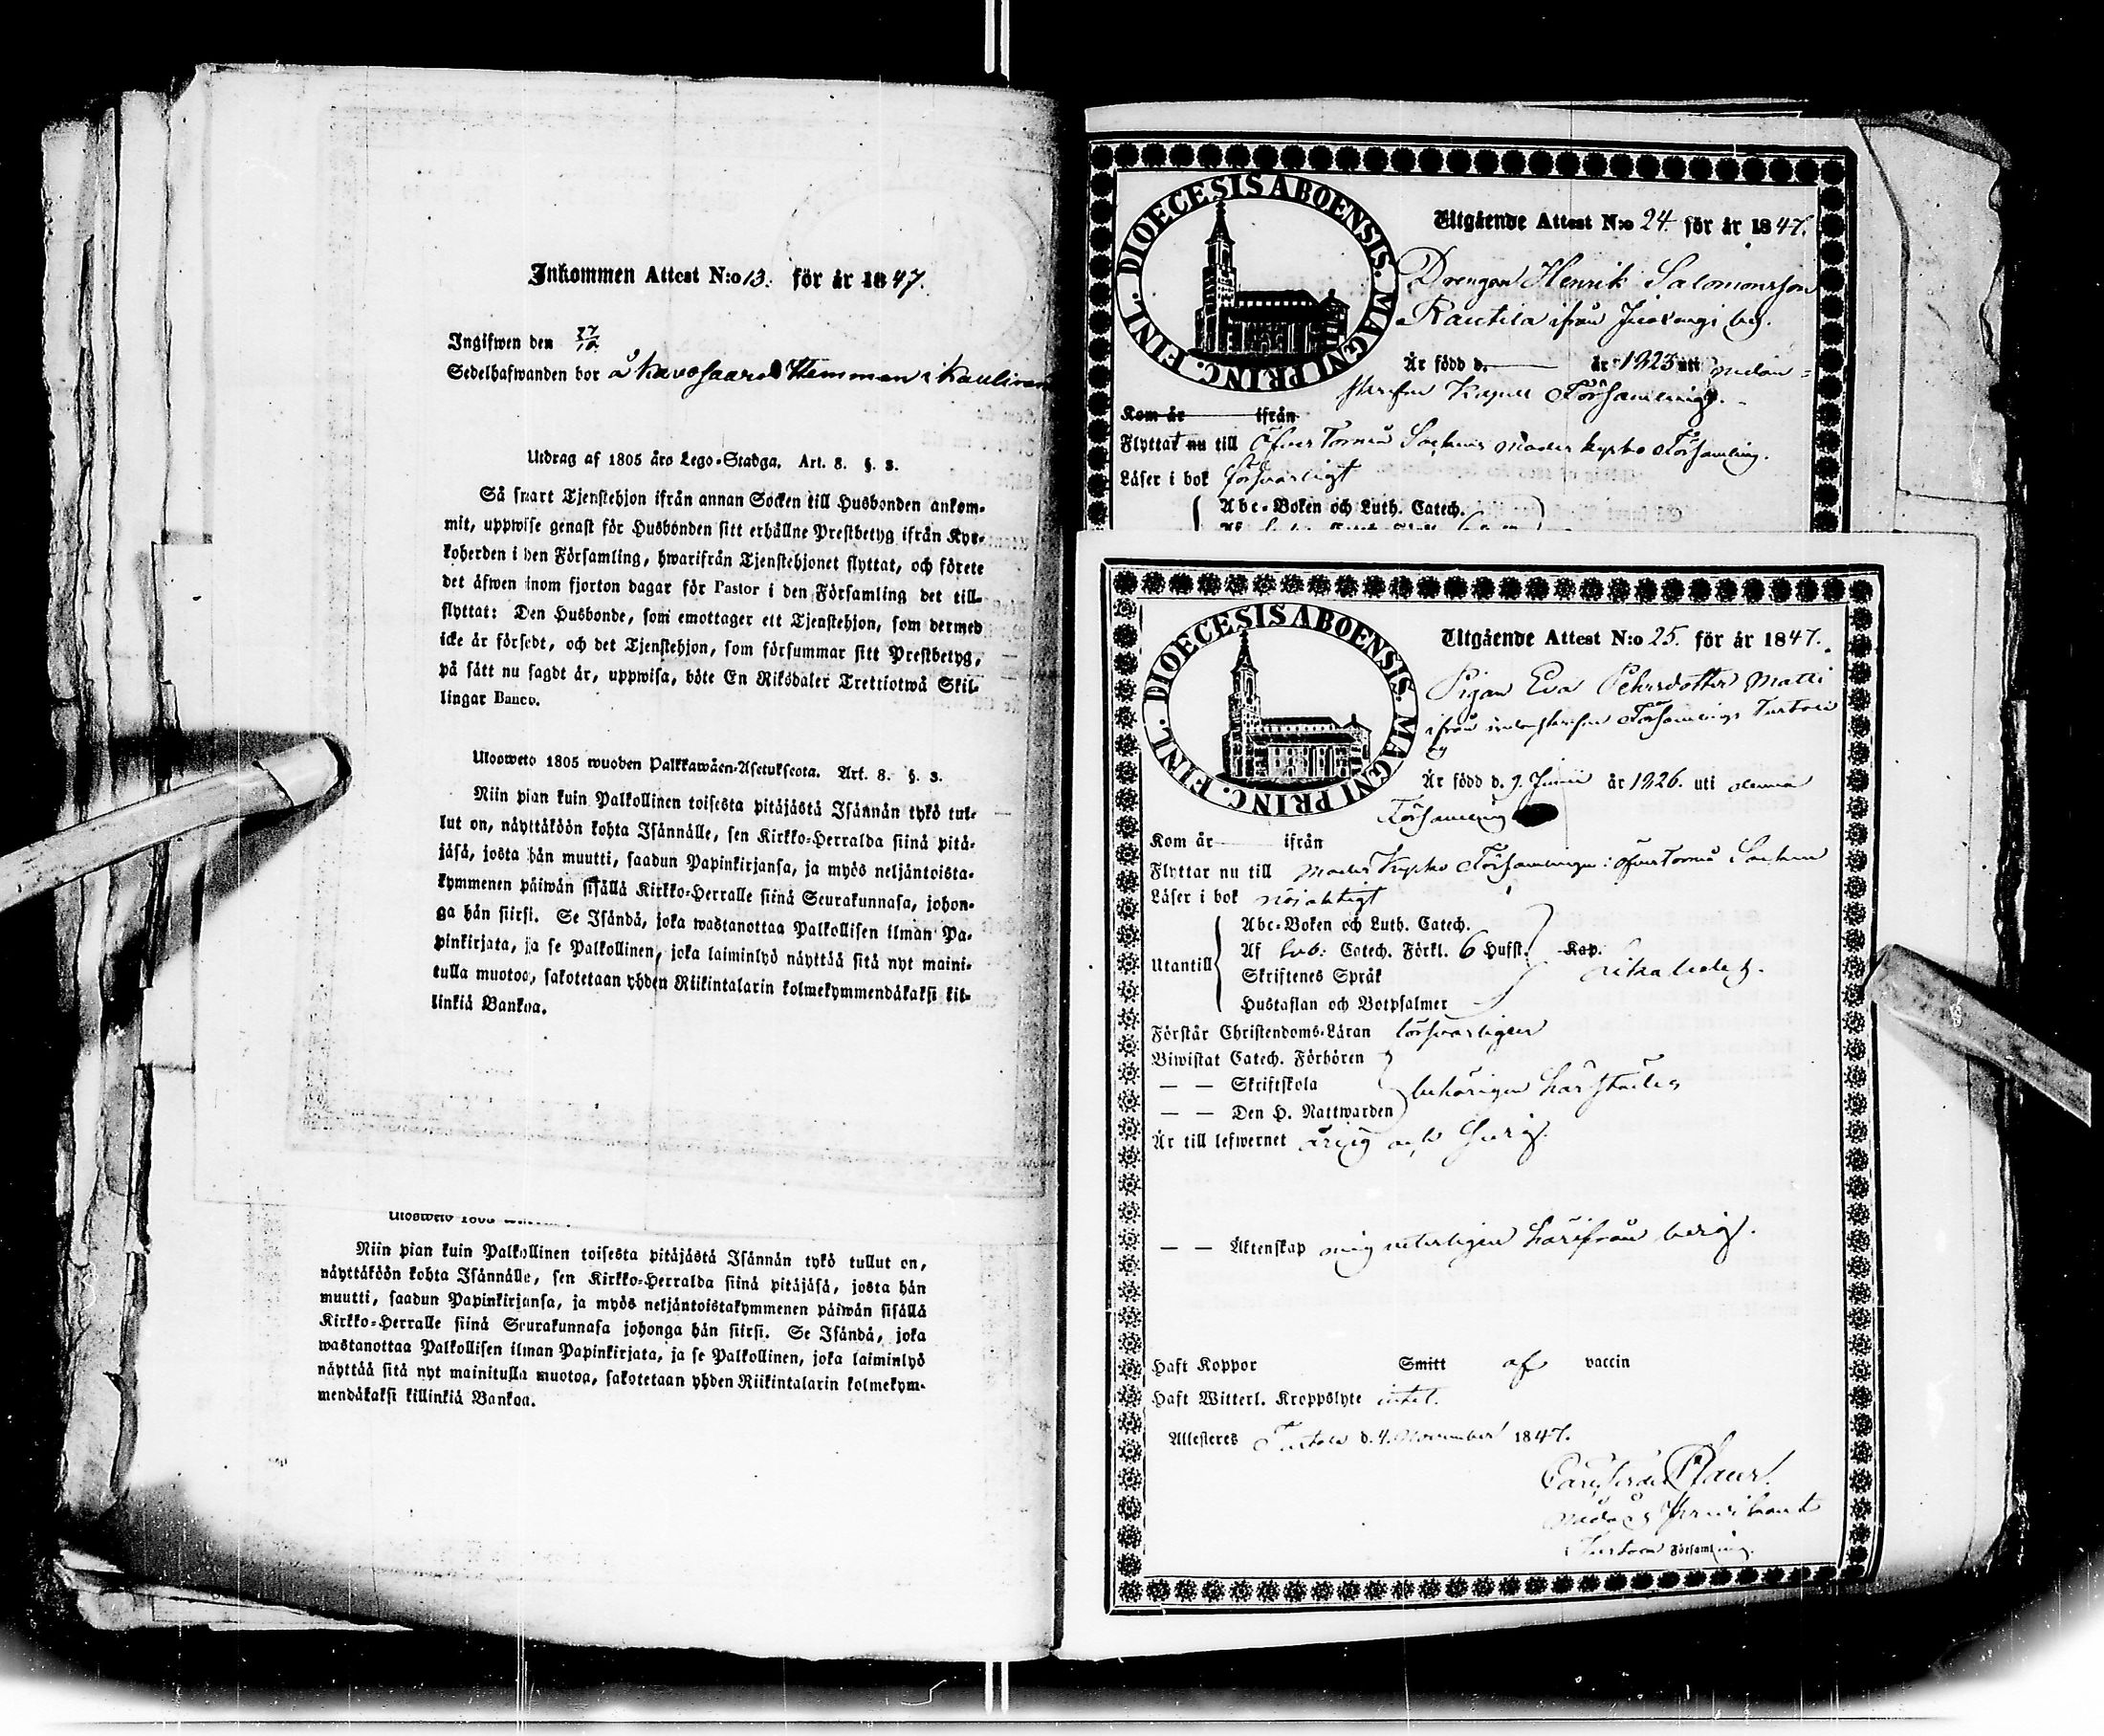 Inkommen Attest N:o 13. för år 1847.
Ingifwen den 27/10.
Sedelhafwanden bor å Hemman i
Utdrag af 1805 års Lego-Stadga. Art. 8. §. 3.
Så snart Tjenstehjon ifrån annan Socken till Husbonden ankom-
mit, uppwise genast för Husbonden sitt erhållne Prestbetyg ifrån Kyr-
koherden i den Församling, hwarifrån Tjenstehjonet flyttat, och förete
det äfwen inom fjorton dagar för Pastor i den Församling det till-
flyttat: Den Husbonde, som emottager ett Tjenstehjon, som dermed
icke är försedt, och det Tjenstehjon, som försummar sitt Prestbetyg,
på sätt nu sagdt är, uppwisa, böte En Riksdaler Trettiotwå Skil-
lingar Banco.
Ulosweto 1805 wuoden Palkkawäen-Asetuksesta. Art. 8. §. 3.
Niin pian kuin Palkollinen toisesta pitäjästä Isännän tykö tul-
lut on, näyttäköön kohta Isännälle, sen Kirkko-Herralda siinä pitä-
jäsä, josta hän muutti, saadun Papinkirjansa, ja myös neljäntoista-
kymmenen päiwän sisällä Kirkko-Herralle siinä Seurakunnasa, johon-
ga hän siirsi. Se Isändä, joka wastanottaa Palkollisen ilman Pa-
pinkirjata, ja se Palkollinen, joka laiminlyö näyttää sitä nyt maini-
tulla muotoa, sakotetaan yhden Riikintalarin kolmekymmendäkaksi kil-
linkiä Bankoa.
Niin pian kuin Palkollinen toisesta pitäjästä Isännän tykö tullut on,
näyttäköön kohta Isännälle, sen Kirkko-Herralda siinä pitäjäsä, josta hän
muutti, saadun Papinkirjansa, ja myös neljäntoistakymmenen päiwän sisällä
Kirkko-Herralle siinä Seurakunnasa johonga hän siirsi. Se Isändä, joka
wastanottaa Palkollisen ilman Papinkirjata, ja se Palkollinen, joka laiminlyö
näyttää sitä nyt mainitulla muotoa, sakotetaan yhden Riikintalarin kolmekym-
mendäkaksi killinkiä Bankoa.
DIOECESIS ABOENSIS. MAGNI PRINC. FINL.
Utgående Attest N:o 24. för år 1847.
Drengen Henrik Salomonsson
Rautila ifrån by.
Är född d. år 1823 uti nedan=
skrefne Kapell Församling.
Kom år ifrån
Flyttat nu till Öfver Torneå Sockens Moder kyrko Församling.
Läser i bok försvarligt
Abc-Boken och Luth. Catech.
DIOECESIS ABOENSIS. MAGNI PRINC. FINL.
Utgående Attest N:o 25. för år 1847.
Pigan Eva Pehrsdotter Matti
ifrån Församlings Turtola
by
Är född d. 9. Junii år 1826. uti denna
Församling
Kom år ifrån
Flyttar nu till Moder Kyrko Församlingen i Öfver Torneå Socken
Läser i bok nöjaktigt
Utantill
Abc-Boken och Luth. Catech.
Af Catech. Förkl. 6 Hufst. Kap.
Skriftenes Språk
Hustaflan och Botpsalmer
likaledes.
Förstår Christendoms-Läran försvarligen
Biwistat Catech. Förhören
— — Skriftskola
— — Den H. Nattwarden
behörigen härstädes
Är till lefwernet ärlig och
— — Äktenskap mig veterligen härifrån ledig.
Haft Koppor Smitt af vaccin
Haft Witterl. Kroppslyte intet.
Attesteres Turtola d. 4. November 1847.
i Turtola Församling.